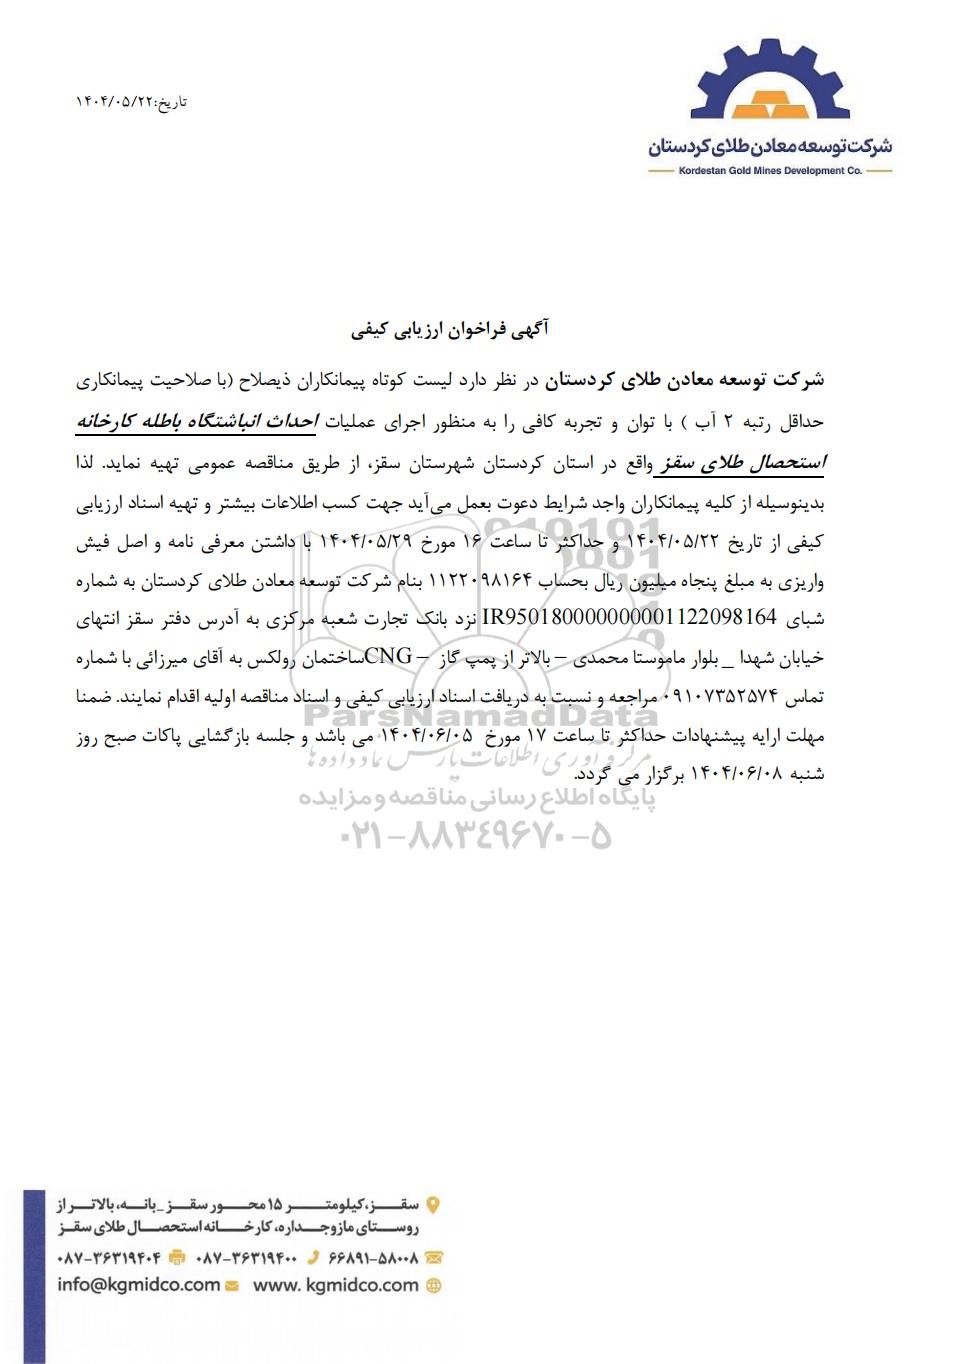 شرکت توسعه معادن طلای کردستان
Kordestan Gold Mines Development Co.
تاریخ:۱۴۰۴/۰۵/۲۲
آگهی فراخوان ارزیابی کیفی
شرکت توسعه معادن طلای کردستان در نظر دارد لیست کوتاه پیمانکاران ذیصلاح (با صلاحیت پیمانکاری
حداقل رتبه ۲ آب ) با توان و تجربه کافی را به منظور اجرای عملیات احداث انباشتگاه باطله کارخانه
استحصال طلای سقز واقع در استان کردستان شهرستان سقز، از طریق مناقصه عمومی تهیه نماید. لذا
بدینوسیله از کلیه پیمانکاران واجد شرایط دعوت بعمل می‌آید جهت کسب اطلاعات بیشتر و تهیه اسناد ارزیابی
کیفی از تاریخ ۱۴۰۴/۰۵/۲۲ و حداکثر تا ساعت ۱۶ مورخ ۱۴۰۴/۰۵/۲۹ با داشتن معرفی نامه و اصل فیش
واریزی به مبلغ پنجاه میلیون ریال بحساب ۱۱۲۲۰۹۸۱۶۴ بنام شرکت توسعه معادن طلای کردستان به شماره
شبای IR950180000000001122098164 نزد بانک تجارت شعبه مرکزی به آدرس دفتر سقز انتهای
خیابان شهدا _ بلوار ماموستا محمدی – بالاتر از پمپ گاز CNG – ساختمان رولکس به آقای میرزائی با شماره
تماس ۰۹۱۰۷۳۵۲۵۷۴ مراجعه و نسبت به دریافت اسناد ارزیابی کیفی و اسناد مناقصه اولیه اقدام نمایند. ضمنا
مهلت ارایه پیشنهادات حداکثر تا ساعت ۱۷ مورخ ۱۴۰۴/۰۶/۰۵ می باشد و جلسه بازگشایی پاکات صبح روز
شنبه ۱۴۰۴/۰۶/۰۸ برگزار می گردد.
ParsNamadData
مرکز فرآوری اطلاعات پارس نماد داده‌ها
پایگاه اطلاع رسانی مناقصه و مزایده
۰۲۱-۸۸۳۴۹۶۷۰-۵
سقز، کیلومتر ۱۵ محور سقز _ بانه، بالاتر از
روستای مازوجداره، کارخانه استحصال طلای سقز
۶۶۸۹۱-۵۸۰۰۸ ۰۸۷-۳۶۳۱۹۴۰۰ ۰۸۷-۳۶۳۱۹۴۰۴
www. kgmidco.com info@kgmidco.com